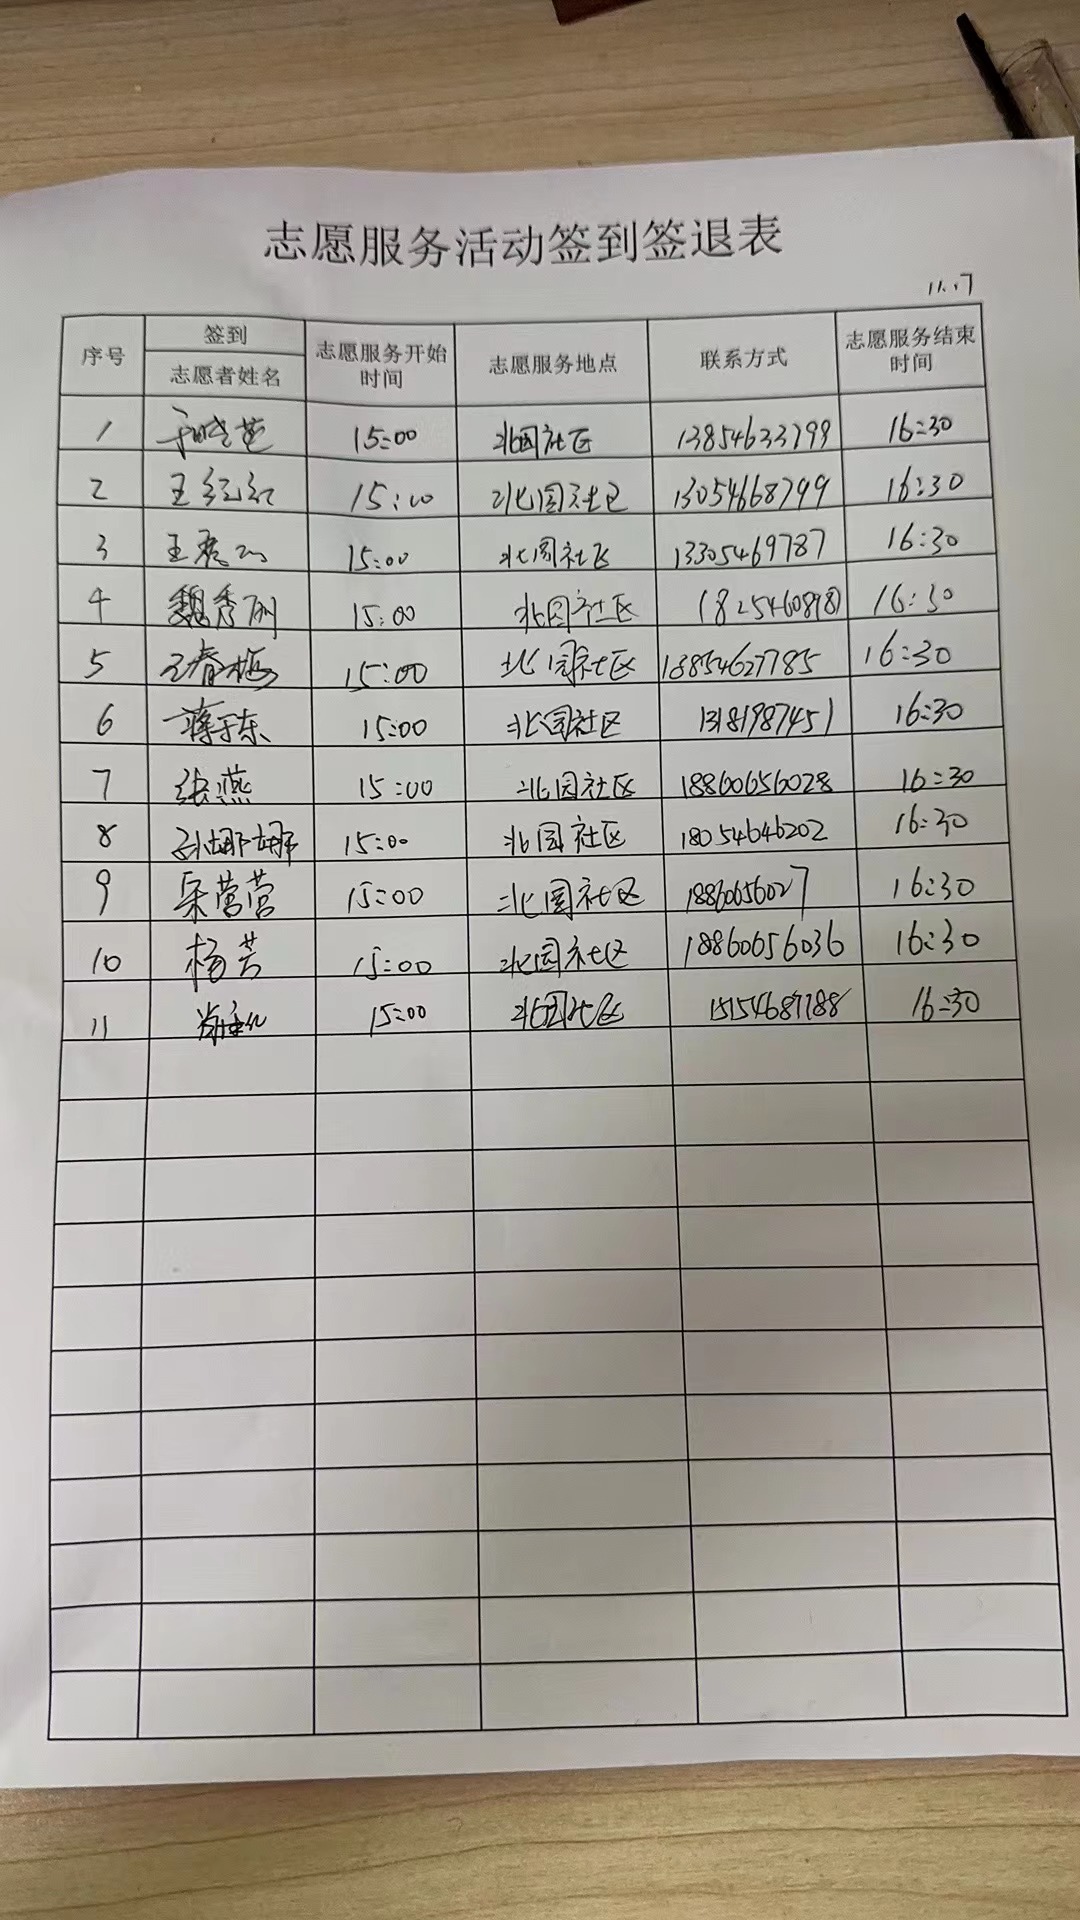 志愿服务活动签到签退表
11.17
序号 签到 志愿者姓名 志愿服务开始时间 志愿服务地点 联系方式 志愿服务结束时间
1 15:00 北园社区 13854633799 16:30
2 王红红 15:00 北园社区 13054668799 16:30
3 15:00 北园社区 13305469787 16:30
4 魏秀丽 15:00 北园社区 16:30
5 王春梅 15:00 北园社区 13854627785 16:30
6 蒋于东 15:00 北园社区 13181987451 16:30
7 张燕 15:00 北园社区 18860656028 16:30
8 孙娜娜 15:00 北园社区 18054646202 16:30
9 宋营营 15:00 北园社区 18860656027 16:30
10 杨芳 15:00 北园社区 18860656036 16:30
11 15:00 北园社区 15154687788 16:30